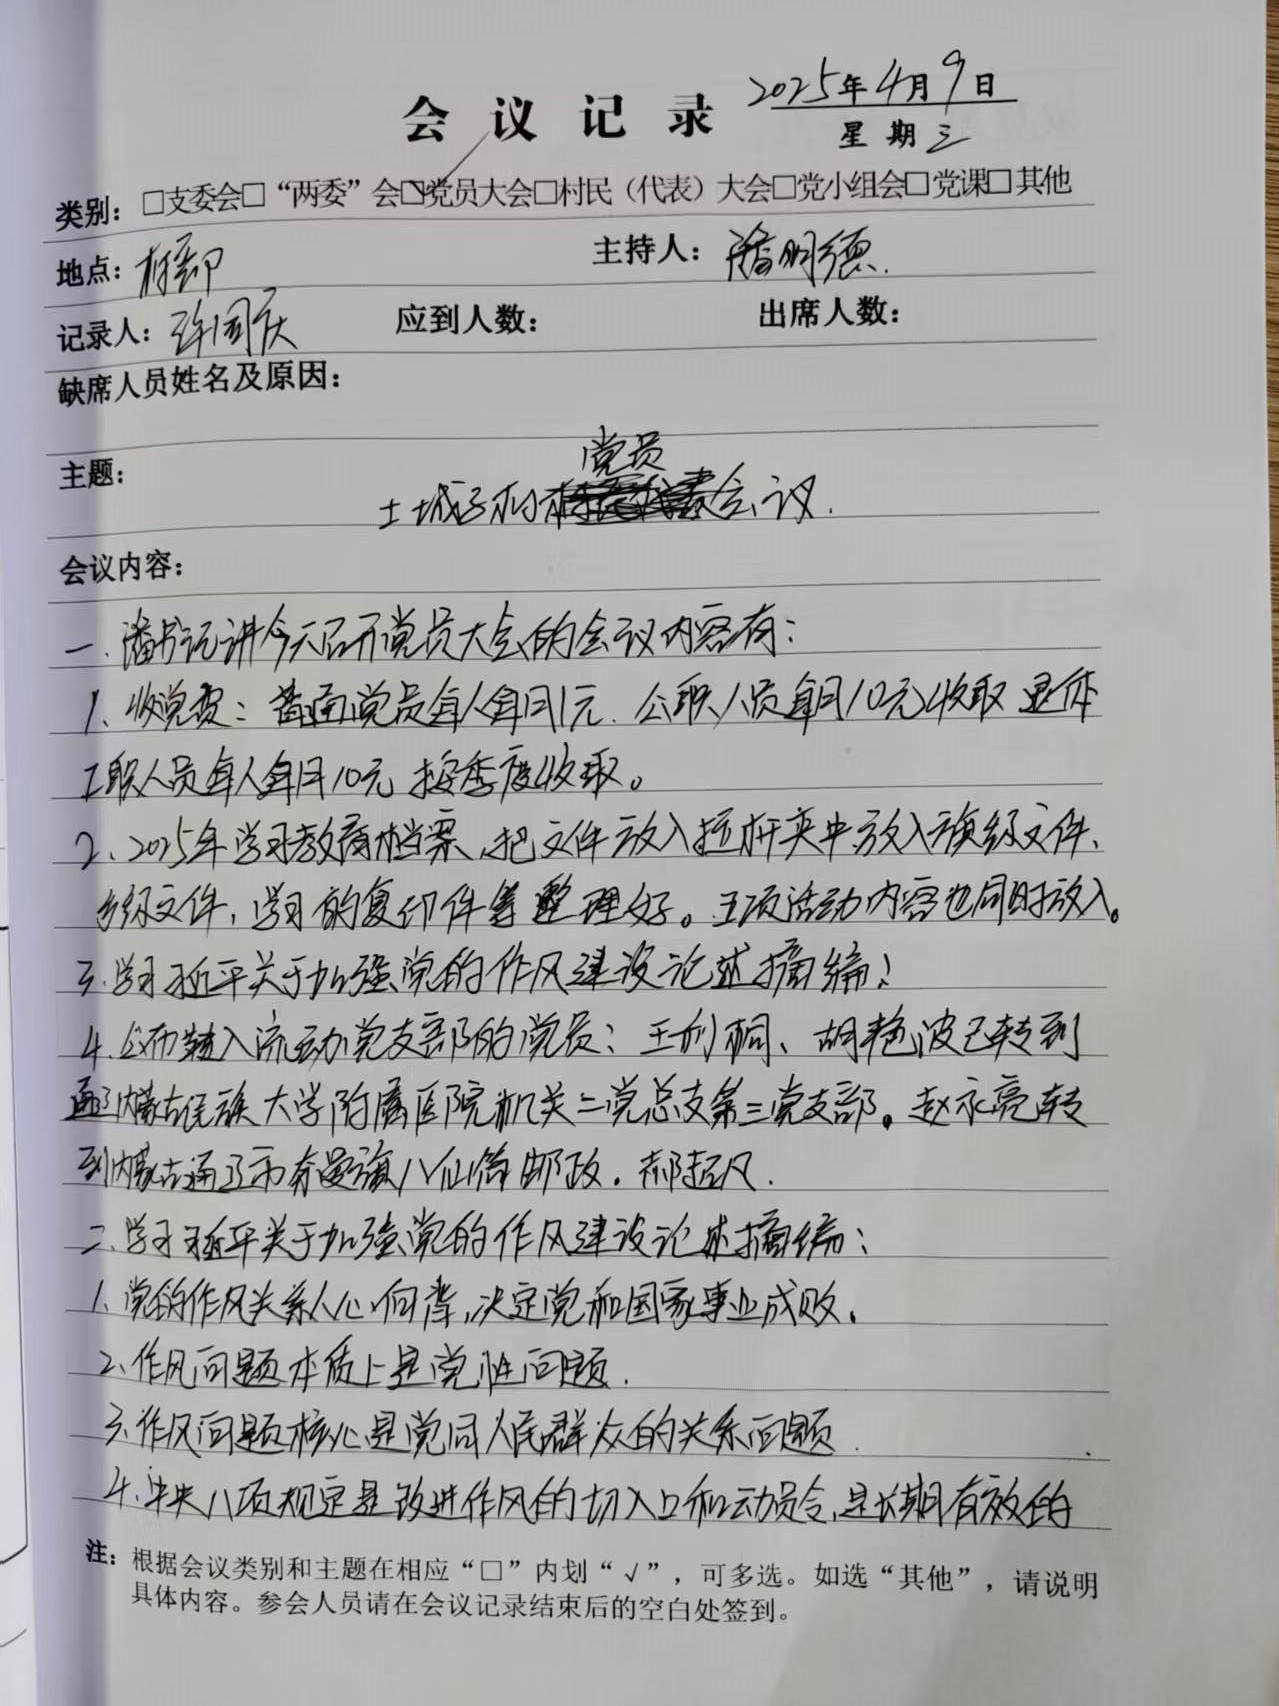 会议记录 2025年4月9日
星期三
类别：□支委会□“两委”会☑党员大会□村民（代表）大会□党小组会□党课□其他
地点：村部 主持人：潘明德.
记录人：许国庆 应到人数： 出席人数：
缺席人员姓名及原因：
党员
主题：土城子村会议.
会议内容：
一.潘书记讲今天召开党员大会的会议内容有：
1、收党费：普通党员每人每月1元.公职人员每月10元收取 退休
工职人员每人每月10元 按季度收取。
2、2025年学习教育档案,把文件放入拉杆夹中放入旗级文件、
乡级文件,学习的复印件等整理好。五项活动内容也同时放入。
3.学习习近平关于加强党的作风建设论述摘编!
4.公布转入流动党支部的党员：王利桐、胡艳波已转到
通辽内蒙古民族大学附属医院机关二党总支第三党支部。赵永亮转
到内蒙古通辽市奈曼旗八仙筒邮政.郝超凡.
二.学习习近平关于加强党的作风建设论述摘编：
1、党的作风关系人心向背,决定党和国家事业成败.
2、作风问题本质上是党性问题.
3.作风问题核心是党同人民群众的关系问题.
4.中央八项规定是改进作风的切入口和动员令,是长期有效的
注：根据会议类别和主题在相应“□”内划“√”，可多选。如选“其他”，请说明
具体内容。参会人员请在会议记录结束后的空白处签到。